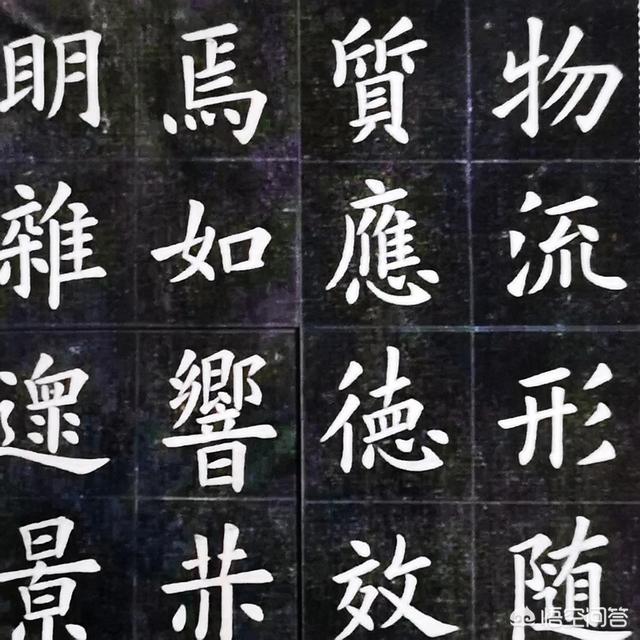 物流形随
質應徳效
焉如響
明雜遝景
悟空问答